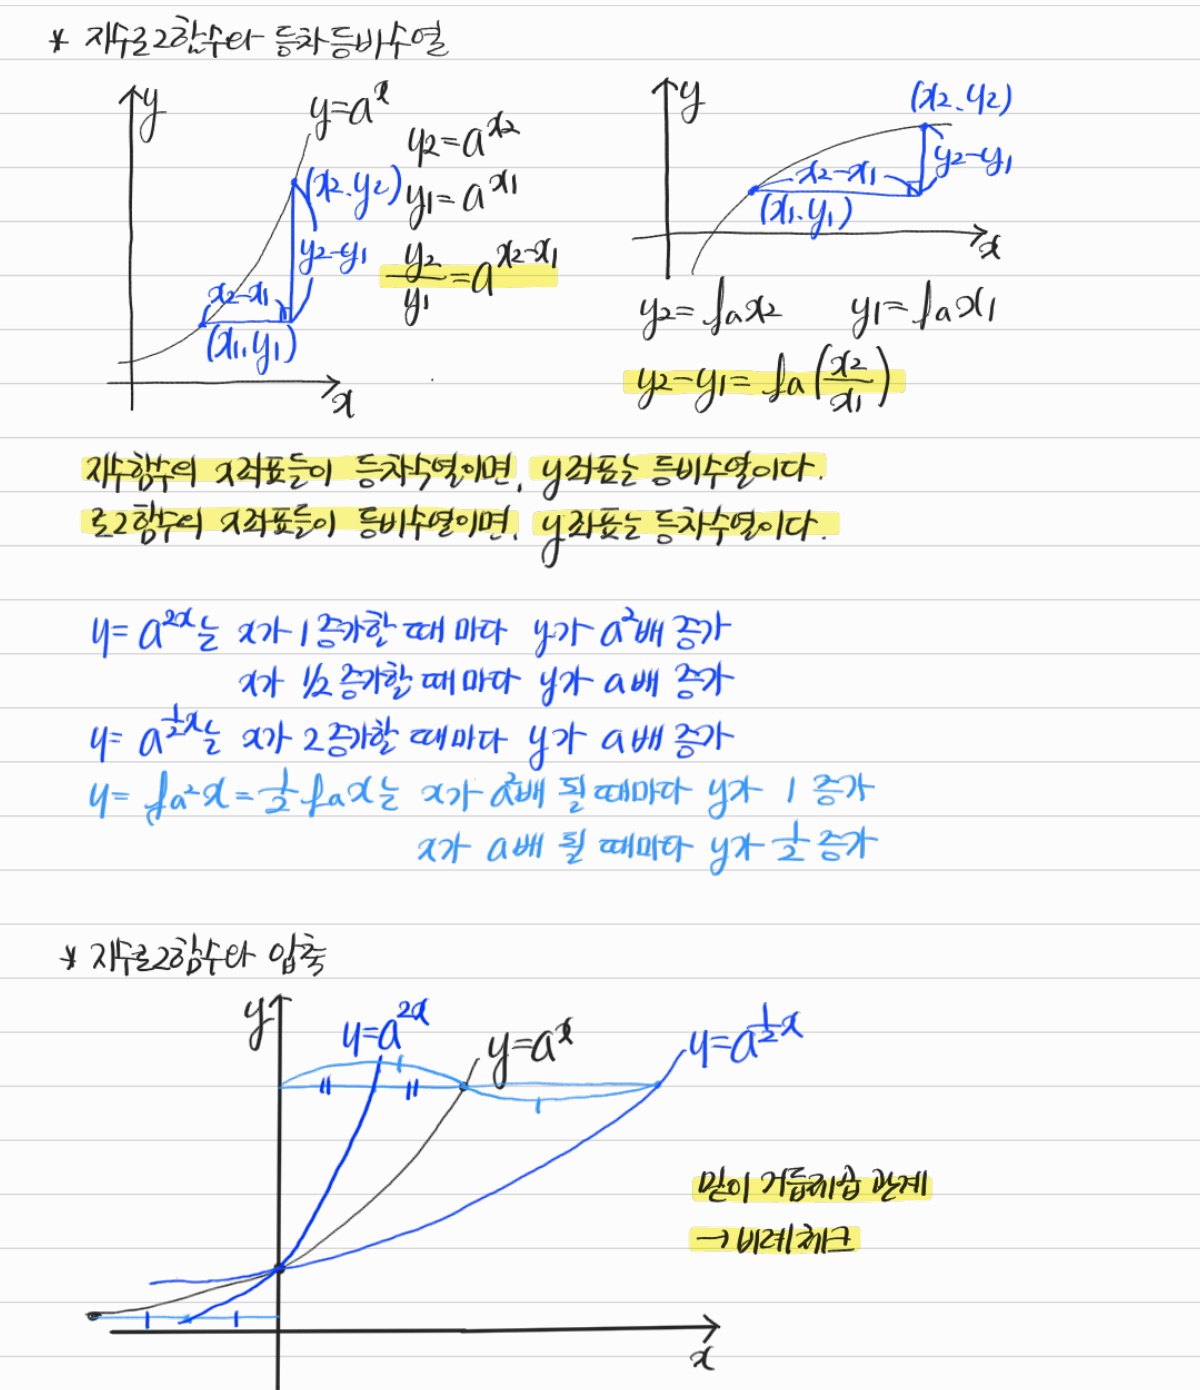 * 지수로그함수와 등차등비수열
y
y=a^x
y₂=a^{x₂}
(x₂,y₂)
y₁=a^{x₁}
y₂-y₁
y₂/y₁=a^{x₂-x₁}
x₂-x₁
(x₁,y₁)
x
y
(x₂,y₂)
y₂-y₁
x₂-x₁
(x₁,y₁)
x
y₂=logₐx₂ y₁=logₐx₁
y₂-y₁=logₐ(x₂/x₁)
지수함수의 x좌표들이 등차수열이면, y좌표는 등비수열이다.
로그함수의 x좌표들이 등비수열이면, y좌표는 등차수열이다.
y=a^{2x}는 x가 1 증가할 때마다 y가 a²배 증가
x가 1/2 증가할 때마다 y가 a배 증가
y=a^{½x}는 x가 2 증가할 때마다 y가 a배 증가
y=log_{a²}x=½logₐx는 x가 a²배 될 때마다 y가 1 증가
x가 a배 될 때마다 y가 ½ 증가
* 지수로그함수와 압축
y
y=a^{2x}
y=a^x
y=a^{½x}
밑이 거듭제곱 관계
→ 비례체크
x